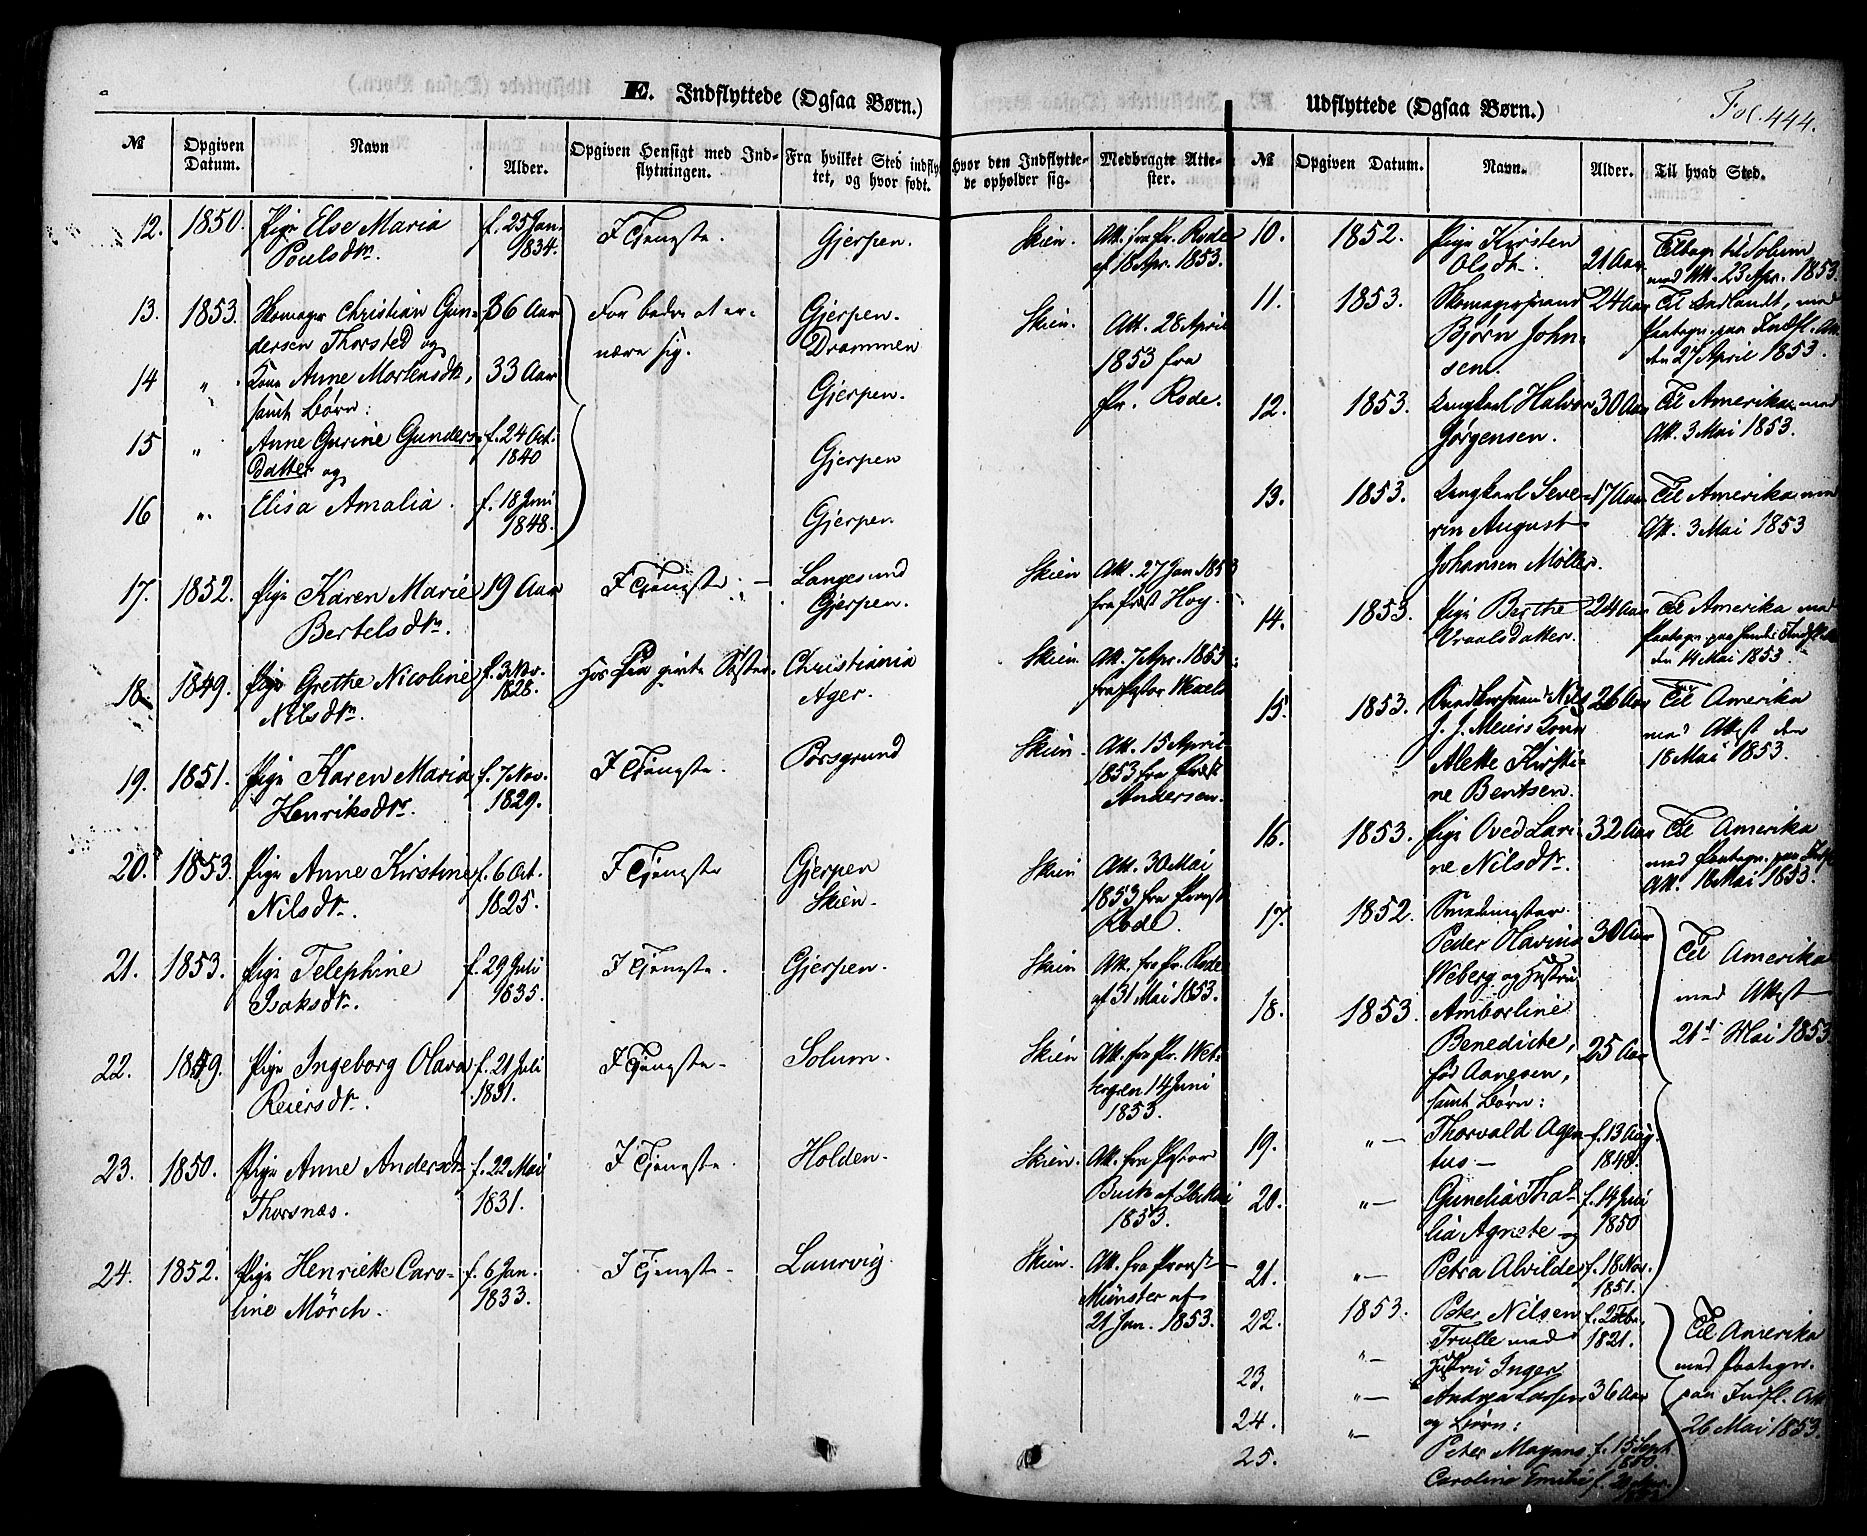 E. Indflyttede (Ogsaa Børn.)
№ Opgiven Datum. Navn Alder. Opgiven Hensigt med Indflytningen. Fra hvilket Sted indflyttet, og hvor født. Hvor den Indflyttede opholder sig. Medbragte Attester.
12. 1850. Pige Else Maria f. 25 Jan. I Tjeneste. Gjerpen. Skien. Att. fra Pr. Rode
Poulsdtr. 1834. af 18 Apr. 1853.
13. 1853. Skomager Christian Gun- 36 Aar For bedre at er- Gjerpen. Skien. Att. 28 April
dersen Thorsted og nære sig. Drammen 1853 fra
14 " Kone Anne Mortensdtr, 33 Aar Gjerpen. Pr. Rode.
samt Børn:
15 " Anne Gurine Gunders- f. 24 Oct. Gjerpen
Datter og 1840
16 " Elisa Amalia. f. 18 Juni Gjerpen.
1848.
17. 1852. Pige Karen Marie 19 Aar I Tjeneste. Langesund Skien Att. 27 Jan 1853
Bertelsdtr. Gjerpen. fra Præst Hoy.
18. 1849. Pige Grethe Nicoline f. 3 Nov. Hos sin givte Søster. Christiania Skien. Att. 7 Apr. 1853
Nilsdtr. 1828. Ager. fra Pastor Wexels
19. 1851. Pige Karen Maria f. 7 Nov. I Tjeneste. Porsgrund Skien. Att. 15 April
Henriksdtr. 1829. 1853 fra Præst
Andersen.
20. 1853. Pige Anne Kirstine f. 6 Oct. I Tjeneste Gjerpen Skien Att. 30 Mai
Nilsdtr. 1825. Skien. 1853 fra Provst
Rode.
21. 1853. Pige Telephine f. 29 Juli I Tjeneste. Gjerpen. Skien Att. fra Pr. Rode
Isaksdtr. 1835. af 31 Mai 1853.
22. 1849. Pige Ingeborg Olava f. 21 Juli I Tjeneste. Solum. Skien Att. fra Pr. Wet-
Reiersdtr. 1831. tergren 14 Juni
1853.
23. 1850. Pige Anne Andersdtr f. 22 Mai I Tjeneste. Holden. Skien. Att. fra Pastor
Thorsnæs. 1831. af 26 Mai
1853.
24. 1852. Pige Henriette Caro- f. 6 Jan. I Tjeneste. Laurvig. Skien. Att. fra Provst
line Mörch. 1833. Münster af
21 Jan. 1853.
Udflyttede (Ogsaa Børn.) Fol. 444.
№ Opgiven Datum. Navn. Alder. Til hvad Sted.
10. 1852. Pige Kirsten 21 Aar Tilbage til Solum
Olsdtr. med Att. 23 Apr. 1853.
11. 1853. Skomagersvend 24 Aar Til Indlandt, med
Bjorn John- Paategn. paa Indfl. Att.
sen. den 27 April 1853.
12. 1853. Ungkarl Halvor 30 Aar Til Amerika med
Jørgensen. Att. 3 Mai 1853.
13. 1853. Ungkarl Seve- 17 Aar Til Amerika med
rin August Att. 3 Mai 1853
Johansen Møller.
14. 1853. Pige Berthe 24 Aar Til Amerika med
Vraalsdatter. Paategn. paa
den 14 Mai 1853.
15. 1853. Nils 26 Aar Til Amerika
J. J. Meiers Kone med Attest den
Alette Kirsti- 18 Mai 1853.
ne Bentsen.
16. 1853. Pige Oved Lari- 32 Aar Til Amerika
ne Nilsdtr. med Paategn. paa
Att. 18 Mai 1853.
17. 1852. Smedmester
Peder Olavius 30 Aar Til Amerika
Weberg og Hustru med Attest
18. 1853. Amborline 21de Mai 1853.
Benedicte, 25 Aar
fød Aangsen,
samt Børn:
19. " Thorvald Agen- f. 13 Aug.
tus 1848.
20. " Gunelia Thal- f. 14 Juli
lia Agnete og 1850
21. " Petra Alvilde f. 18 Nov.
1851.
22. 1853. Peter Nilsen f. 2 Febr. Til Amerika
Trulle med 1821. med Paategn.
23. " Hustru Inger paa Indfl. Att.
24. " Andrea Larsen 36 Aar 26 Mai 1853.
og Børn:
25. " Peter Magnus f. 15 Sept.
1850.
Caroline Emilie